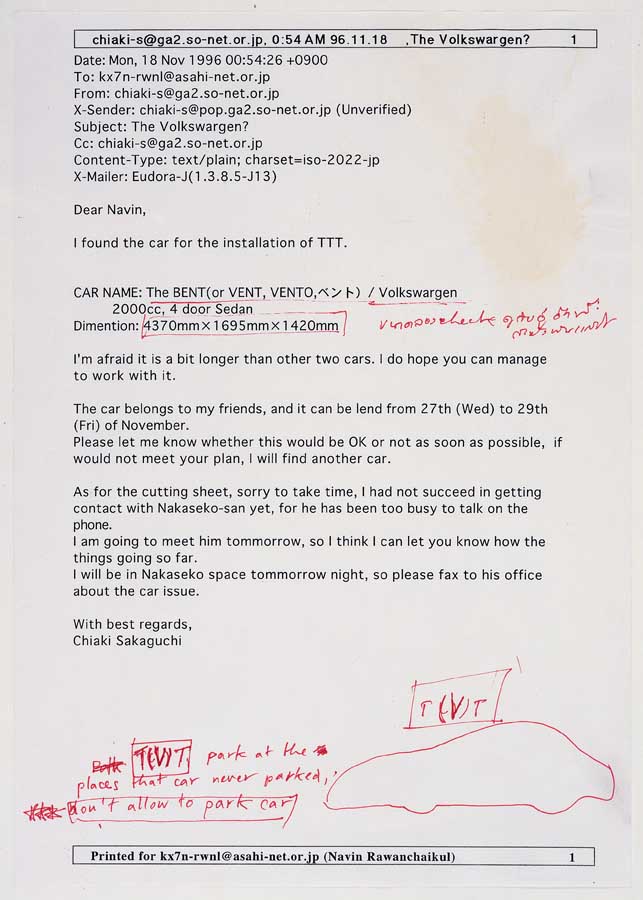 chiaki-s@ga2.so-net.or.jp, 0:54 AM 96.11.18 ,The Volkswargen? 1
Date: Mon, 18 Nov 1996 00:54:26 +0900
To: kx7n-rwnl@asahi-net.or.jp
From: chiaki-s@ga2.so-net.or.jp
X-Sender: chiaki-s@pop.ga2.so-net.or.jp (Unverified)
Subject: The Volkswargen?
Cc: chiaki-s@ga2.so-net.or.jp
Content-Type: text/plain; charset=iso-2022-jp
X-Mailer: Eudora-J(1.3.8.5-J13)
Dear Navin,
I found the car for the installation of TTT.
CAR NAME: The BENT(or VENT, VENTO,ベント) / Volkswargen
2000cc, 4 door Sedan
Dimention: 4370mm×1695mm×1420mm
I'm afraid it is a bit longer than other two cars. I do hope you can manage
to work with it.
The car belongs to my friends, and it can be lend from 27th (Wed) to 29th
(Fri) of November.
Please let me know whether this would be OK or not as soon as possible, if
would not meet your plan, I will find another car.
As for the cutting sheet, sorry to take time, I had not succeed in getting
contact with Nakaseko-san yet, for he has been too busy to talk on the
phone.
I am going to meet him tommorrow, so I think I can let you know how the
things going so far.
I will be in Nakaseko space tommorrow night, so please fax to his office
about the car issue.
With best regards,
Chiaki Sakaguchi
T(V)T
T(V)T park at the
places that car never parked,
don't allow to park car
Printed for kx7n-rwnl@asahi-net.or.jp (Navin Rawanchaikul) 1